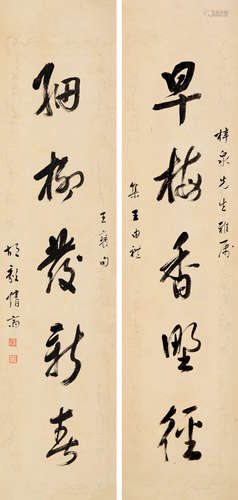 梓泉先生雅屬
早梅香野徑
集王由禮
王褒句
細柳發新春
胡毅情齋